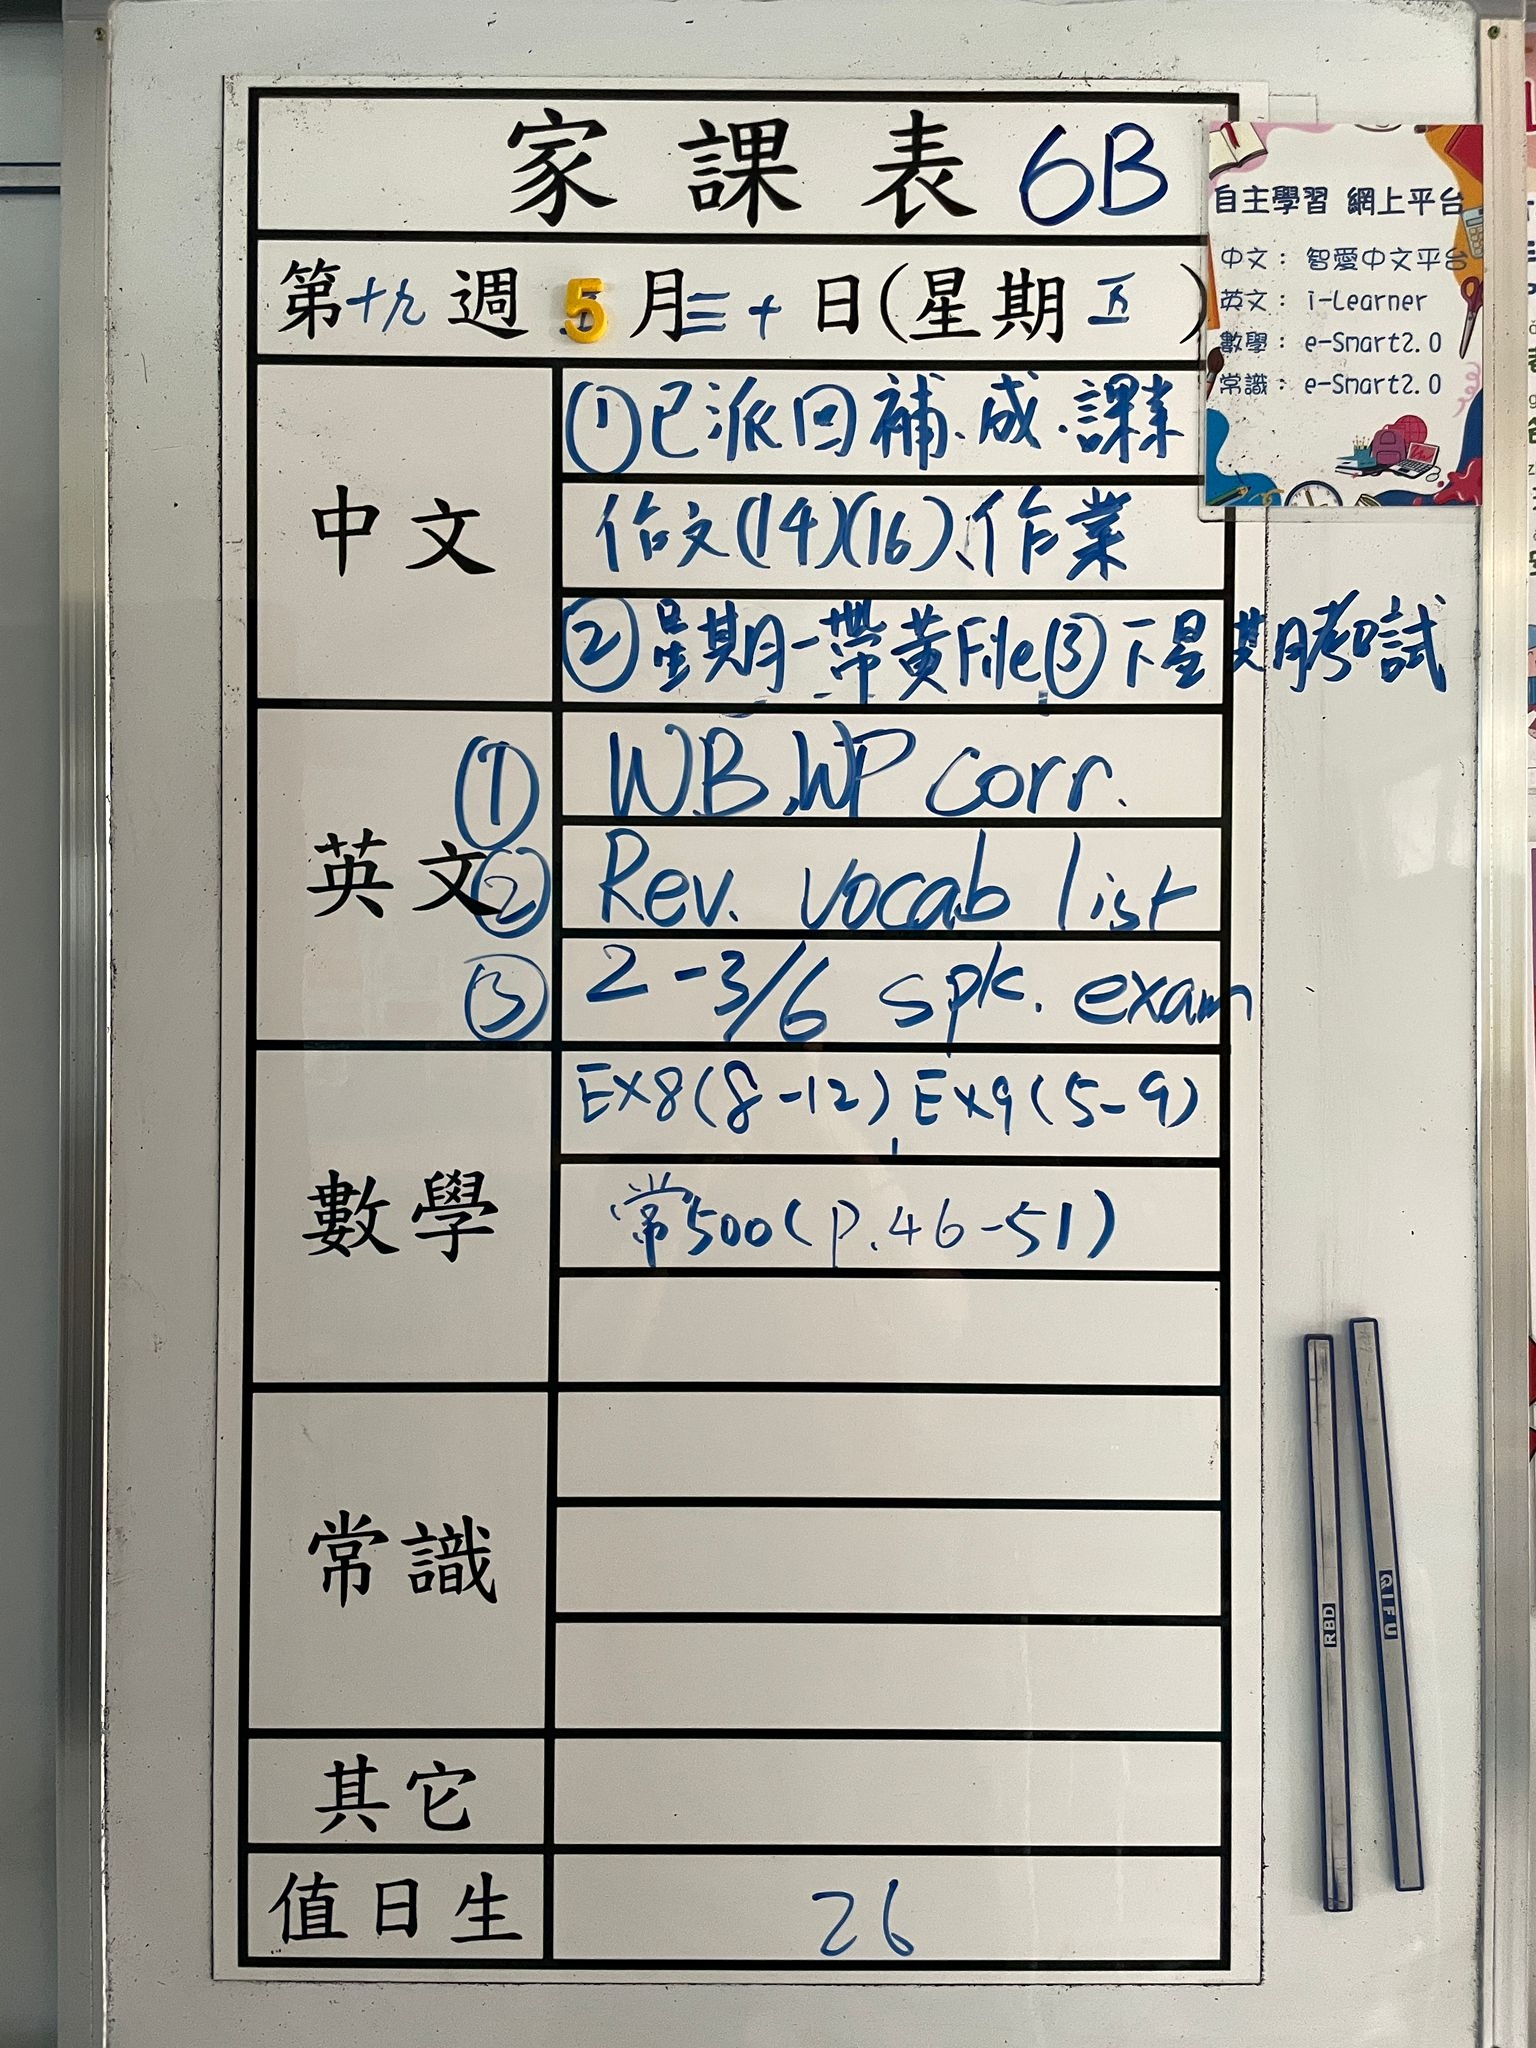 家課表 6B
第十九週 5月三十日(星期五)
中文
①已派回補、成、課業
作文(14)(16)、作業
②星期一帶黃File③下星期考試
英文
① WB, WP corr.
② Rev. vocab list
③ 2-3/6 spk. exam
數學
Ex8(8-12) Ex9(5-9)
常500(p.46-51)
常識
其它
值日生 26
自主學習 網上平台
中文: 智愛中文平台
英文: i-Learner
數學: e-Smart2.0
常識: e-Smart2.0
RBD
QIFU